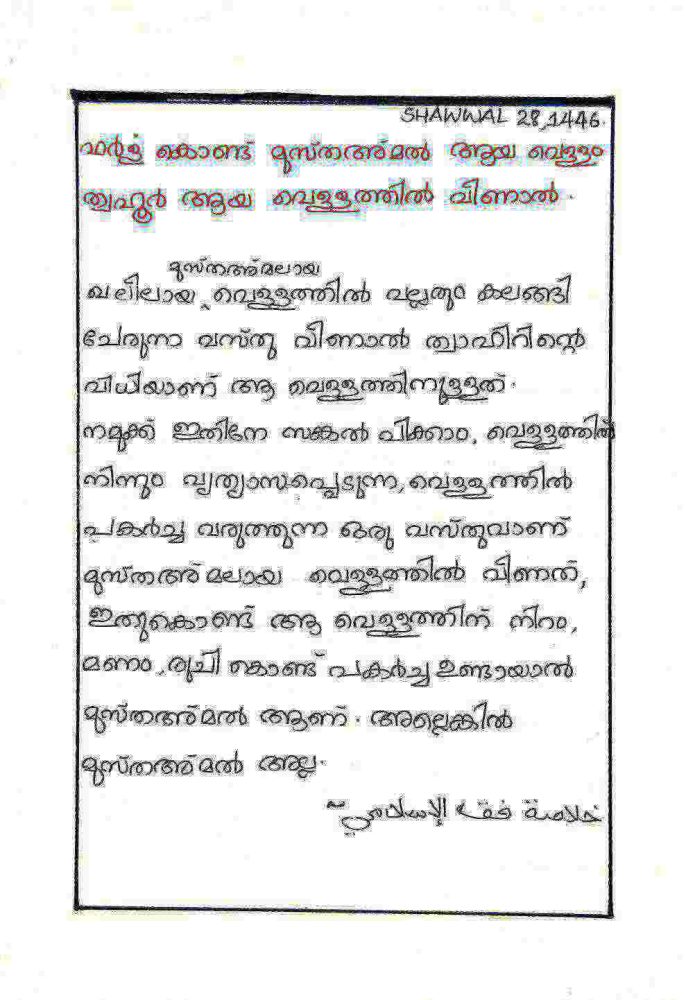 SHAWWAL 28,1446.
ഫർള് കൊണ്ട് മുസ്തഅ്മൽ ആയ വെള്ളം
ത്വഹൂർ ആയ വെള്ളത്തിൽ വീണാൽ.
മുസ്തഅ്മലായ
ഖലീലായ വെള്ളത്തിൽ വല്ലതും കലങ്ങി
ചേരുന്ന വസ്തു വീണാൽ ത്വാഹിറിന്റെ
വിധിയാണ് ആ വെള്ളത്തിനുള്ളത്.
നമുക്ക് ഇതിനേ സങ്കൽപിക്കാം, വെള്ളത്തിൽ
നിന്നും വ്യത്യാസപ്പെടുന്ന, വെള്ളത്തിൽ
പകർച്ച വരുത്തുന്ന ഒരു വസ്തുവാണ്
മുസ്തഅ്മലായ വെള്ളത്തിൽ വീണത്,
ഇതുകൊണ്ട് ആ വെള്ളത്തിന് നിറം,
മണം, രുചി കൊണ്ട് പകർച്ച ഉണ്ടായാൽ
മുസ്തഅ്മൽ ആണ്. അല്ലെങ്കിൽ
മുസ്തഅ്മൽ അല്ല.